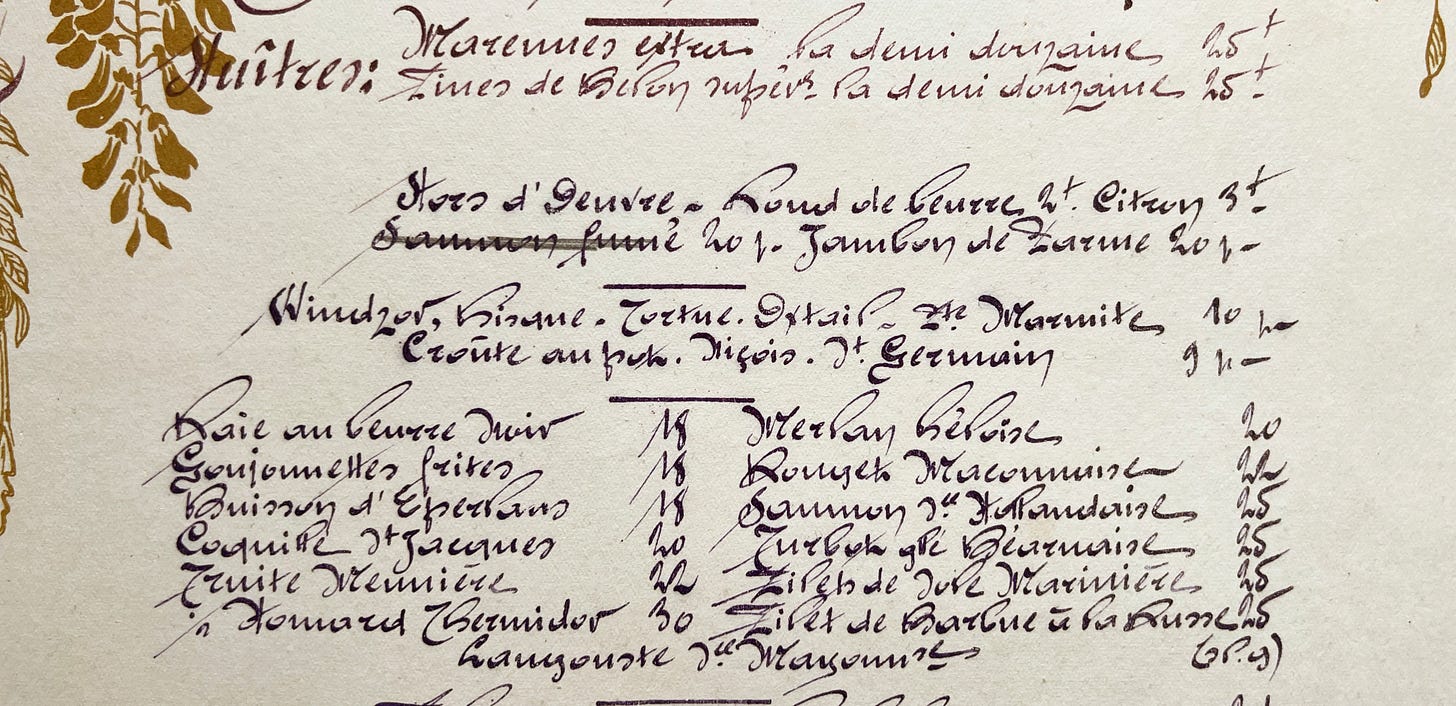 Huîtres: Marennes extra la demi douzaine 25f
Fines de Belon supérs la demi douzaine 25f-
Hors d'Oeuvre - Rond de beurre 2f. Citron 3f-
Saumon fumé 20f- Jambon de Parme 20f-
Windzor, Bisque. Tortue. Oxtail. Pte Marmite 10f-
Croûte au pot. Niçois. St Germain 9f-
Raie au beurre Noir 18 Merlan Héloïse 20
Goujonnettes frites 18 Rouget Maconnaise 22
Buisson d'Eperlans 18 Saumon Sce Holandaise 25
Coquille St Jacques 20 Turbot glé Béarnaise 25
Truite Meunière 22 Filets de Sole Marinière 25
½ Homard Thermidor 30 Filet de Barbue à la Russe 25
Langouste Sce Mayonnse (sl.g)